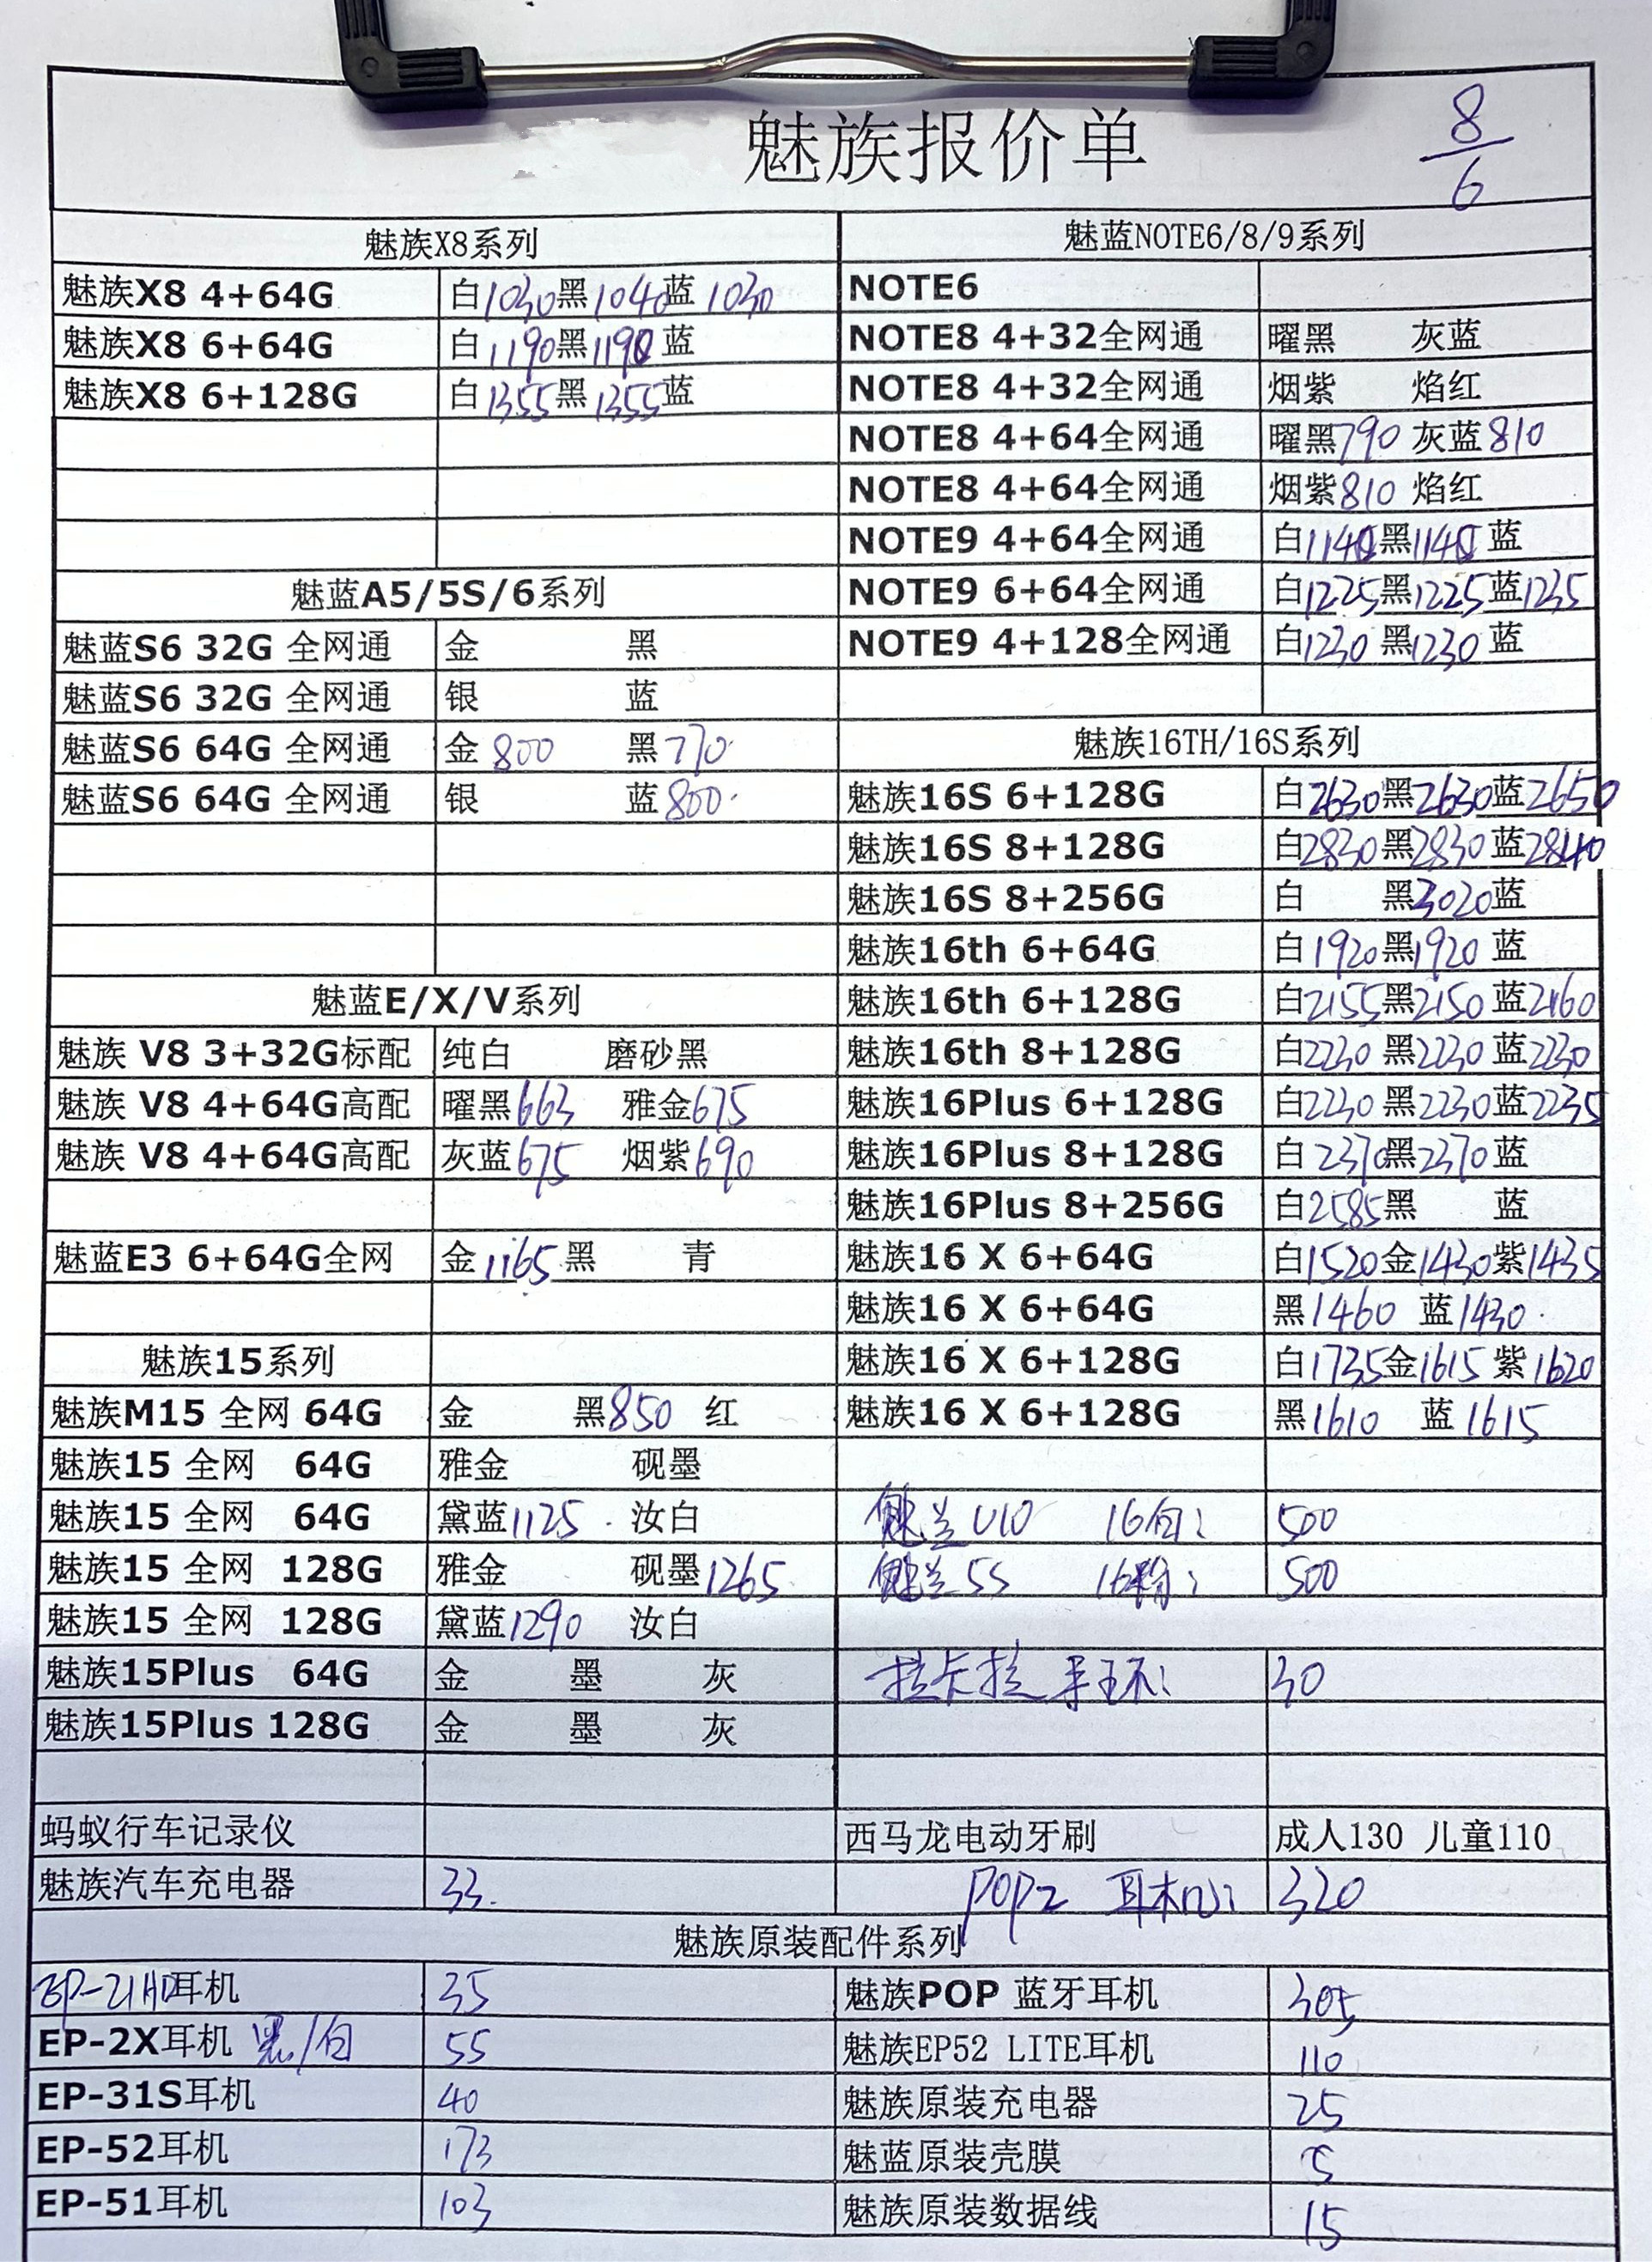 魅族报价单
8/6
魅族X8系列
魅族X8 4+64G 白1030黑1040蓝1030
魅族X8 6+64G 白1190黑1190蓝
魅族X8 6+128G 白1355黑1355蓝
魅蓝A5/5S/6系列
魅蓝S6 32G 全网通 金 黑
魅蓝S6 32G 全网通 银 蓝
魅蓝S6 64G 全网通 金800 黑770
魅蓝S6 64G 全网通 银 蓝800
魅蓝E/X/V系列
魅族 V8 3+32G标配 纯白 磨砂黑
魅族 V8 4+64G高配 曜黑663 雅金675
魅族 V8 4+64G高配 灰蓝675 烟紫690
魅蓝E3 6+64G全网 金1165黑 青
魅族15系列
魅族M15 全网 64G 金 黑850 红
魅族15 全网 64G 雅金 砚墨
魅族15 全网 64G 黛蓝1125 汝白
魅族15 全网 128G 雅金 砚墨1265
魅族15 全网 128G 黛蓝1290 汝白
魅族15Plus 64G 金 墨 灰
魅族15Plus 128G 金 墨 灰
蚂蚁行车记录仪
魅族汽车充电器 33
魅蓝NOTE6/8/9系列
NOTE6
NOTE8 4+32全网通 曜黑 灰蓝
NOTE8 4+32全网通 烟紫 焰红
NOTE8 4+64全网通 曜黑790 灰蓝810
NOTE8 4+64全网通 烟紫810 焰红
NOTE9 4+64全网通 白1140黑1140蓝
NOTE9 6+64全网通 白1225黑1225蓝1235
NOTE9 4+128全网通 白1230黑1230蓝
魅族16TH/16S系列
魅族16S 6+128G 白2630黑2630蓝2650
魅族16S 8+128G 白2830黑2830蓝2840
魅族16S 8+256G 白 黑3020蓝
魅族16th 6+64G 白1920黑1920蓝
魅族16th 6+128G 白2155黑2150蓝2160
魅族16th 8+128G 白2230黑2230蓝2230
魅族16Plus 6+128G 白2230黑2230蓝2235
魅族16Plus 8+128G 白2370黑2370蓝
魅族16Plus 8+256G 白2585黑 蓝
魅族16 X 6+64G 白1520金1430紫1435
魅族16 X 6+64G 黑1460 蓝1430
魅族16 X 6+128G 白1735金1615紫1620
魅族16 X 6+128G 黑1610 蓝1615
魅兰U10 16白: 500
魅兰5S 16粉: 500
拉卡拉手环: 30
西马龙电动牙刷 成人130 儿童110
POP2 耳机: 320
魅族原装配件系列
EP-21HD耳机 35
EP-2X耳机 黑/白 55
EP-31S耳机 40
EP-52耳机 173
EP-51耳机 103
魅族POP 蓝牙耳机 305
魅族EP52 LITE耳机 110
魅族原装充电器 25
魅蓝原装壳膜 5
魅族原装数据线 15